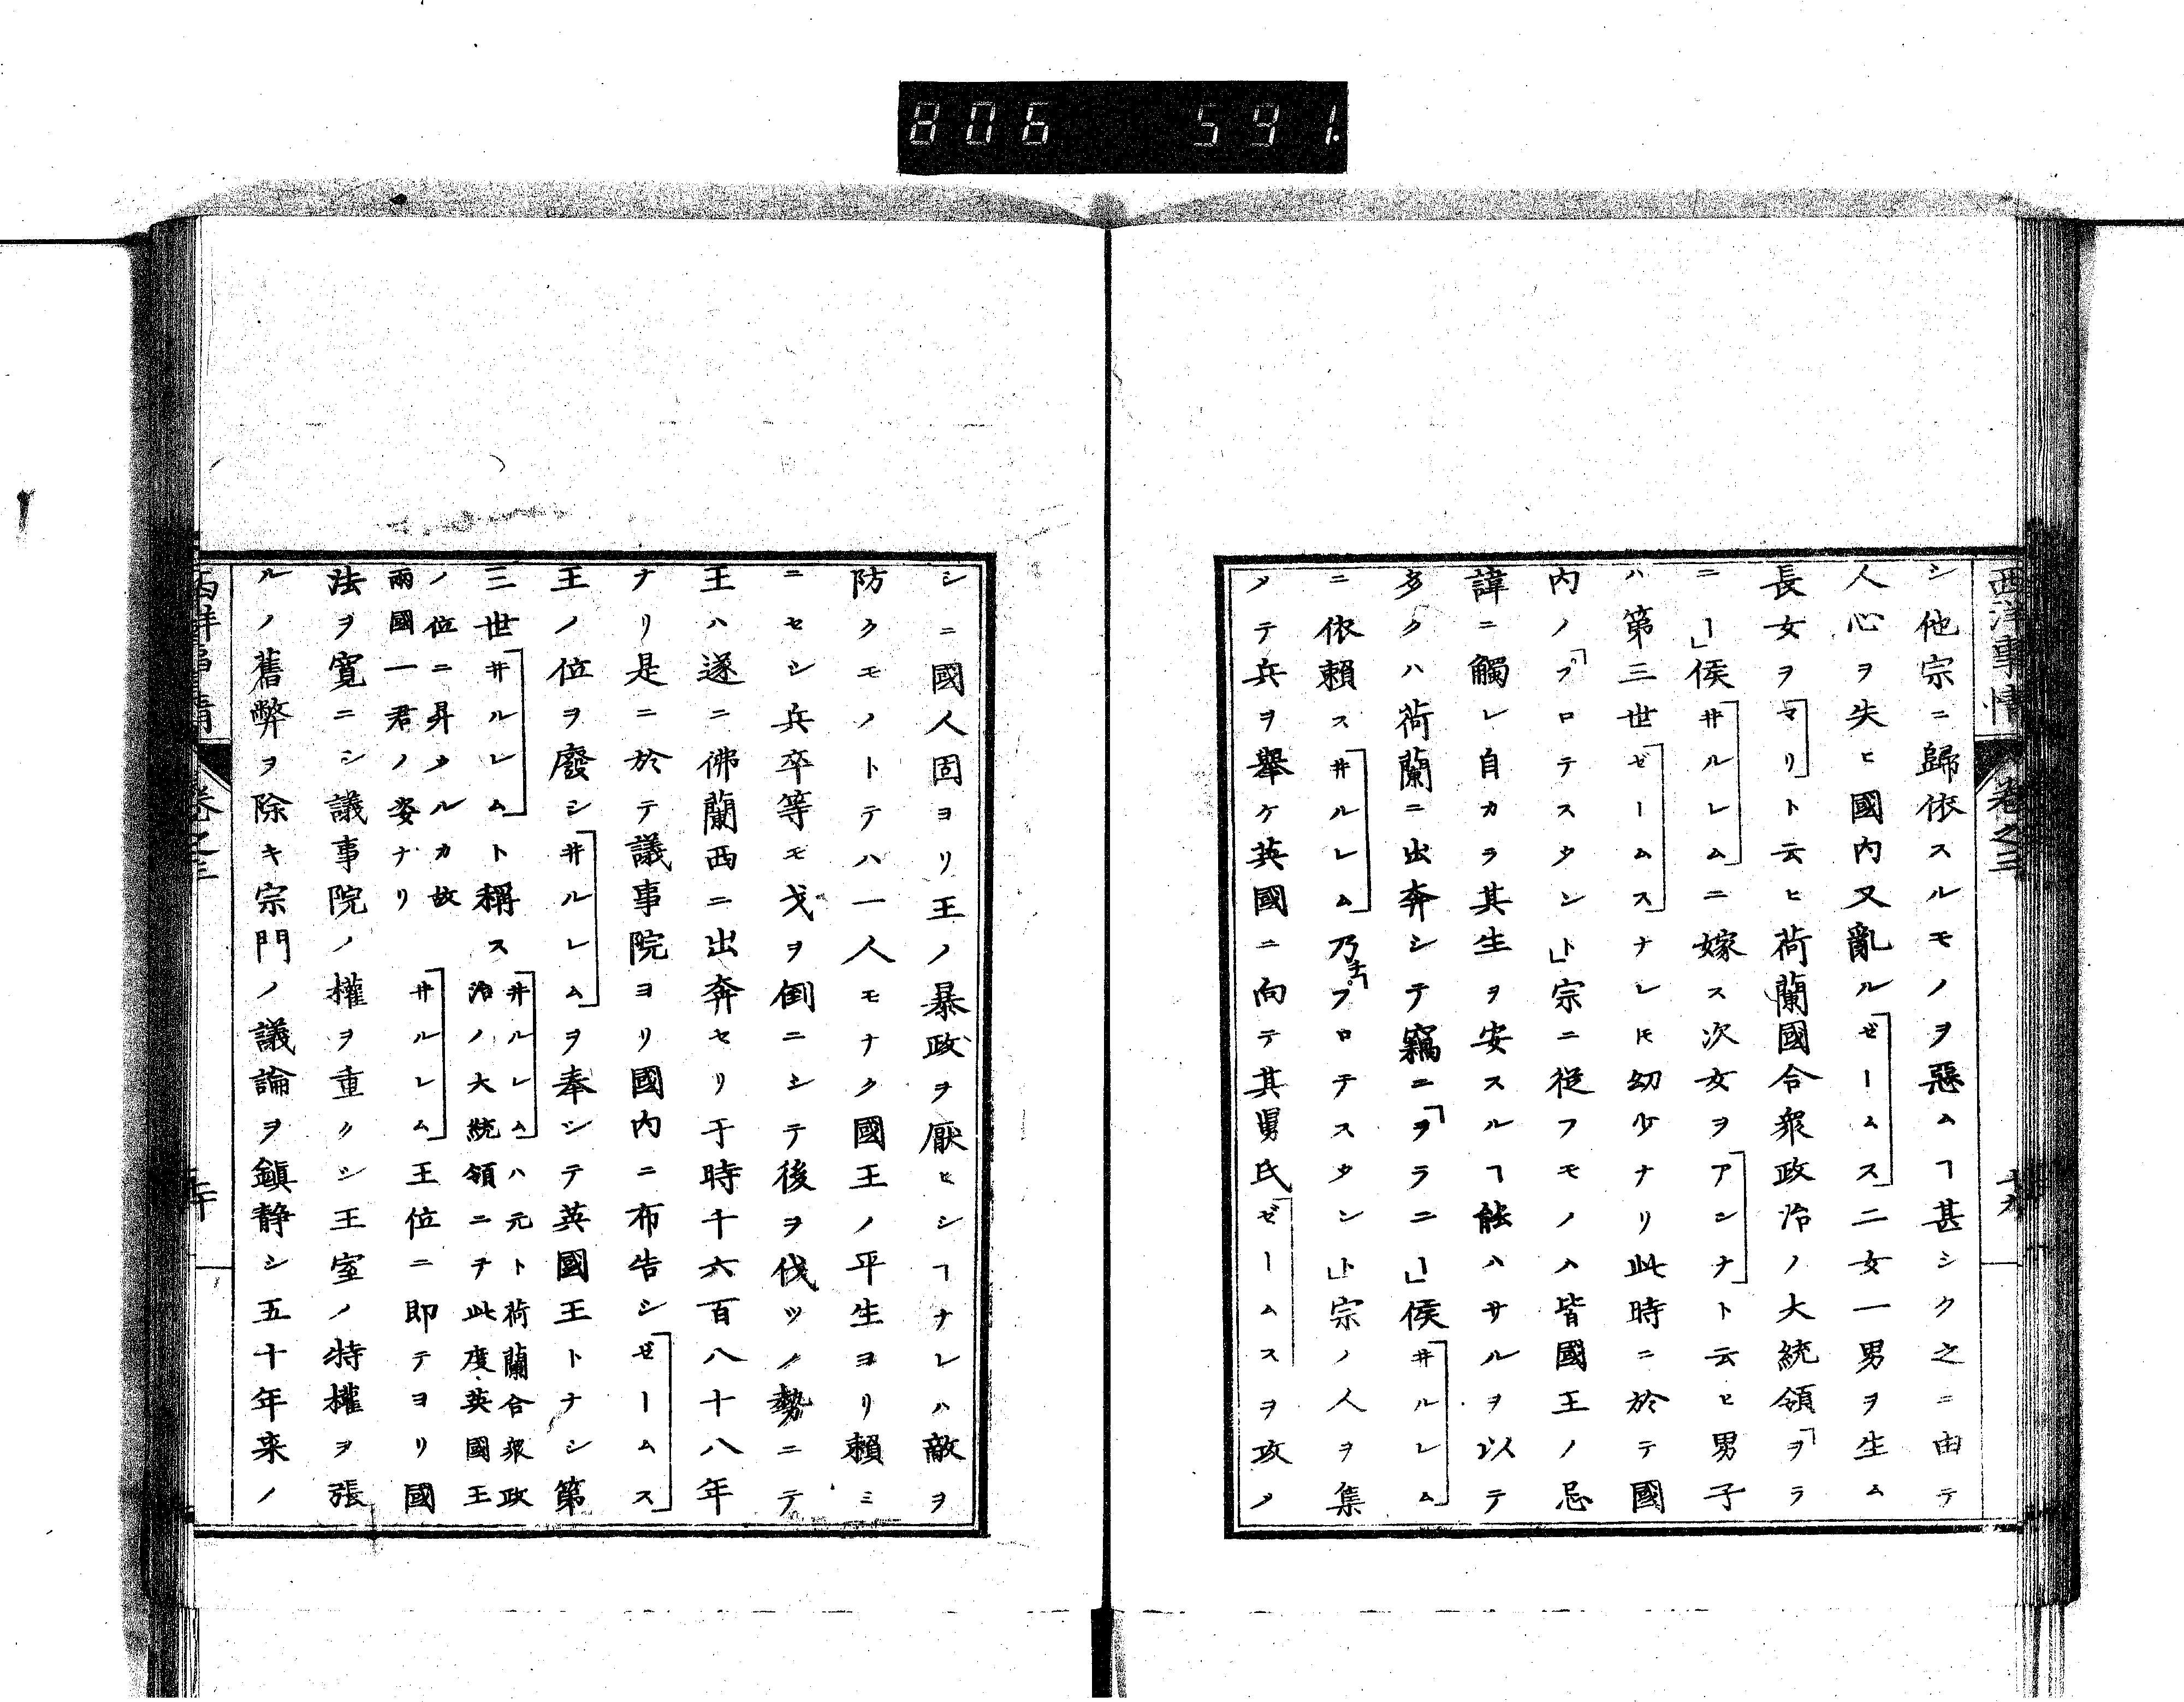 806 591.
西洋事情 卷之三
シ他宗ニ歸依スルモノヲ惡ムヿ甚シク之ニ由テ
人心ヲ失ヒ國内又亂ルゼームス二女一男ヲ生ム
長女ヲマリト云ヒ荷蘭國合衆政治ノ大統領「ヲラ
ニー」侯井ルレムニ嫁ス次女ヲアンナト云ヒ男子
ハ第三世ゼームスナレ𪜈幼少ナリ此時ニ於テ國
内ノ「プロテスタント」宗ニ從フモノハ皆國王ノ忌
諱ニ觸レ自カラ其生ヲ安スルヿ能ハサルヲ以テ
多クハ荷蘭ニ出奔シテ竊ニ「ヲラニー」侯井ルレム
ニ依賴ス井ルレム乃チ「プロテスタント」宗ノ人ヲ集
メテ兵ヲ舉ケ英國ニ向テ其舅氏ゼームスヲ攻メ
シニ國人固ヨリ王ノ暴政ヲ厭ヒシヿナレハ敵ヲ
防クモノトテハ一人モナク國王ノ平生ヨリ賴ミ
ニセシ兵卒等モ戈ヲ倒ニシテ後ヲ伐ツノ勢ニテ
王ハ遂ニ佛蘭西ニ出奔セリ于時千六百八十八年
ナリ是ニ於テ議事院ヨリ國内ニ布告シゼームス
王ノ位ヲ廢シ井ルレムヲ奉シテ英國王トナシ第
三世井ルレムト稱ス井ルレムハ元ト荷蘭合衆政
治ノ大統領ニテ此度英國王
ノ位ニ昇タルカ故
兩國一君ノ姿ナリ
井ルレム王位ニ即テヨリ國
法ヲ寛ニシ議事院ノ權ヲ重クシ王室ノ特權ヲ張
ルノ舊弊ヲ除キ宗門ノ議論ヲ鎭静シ五十年来ノ
卷之三